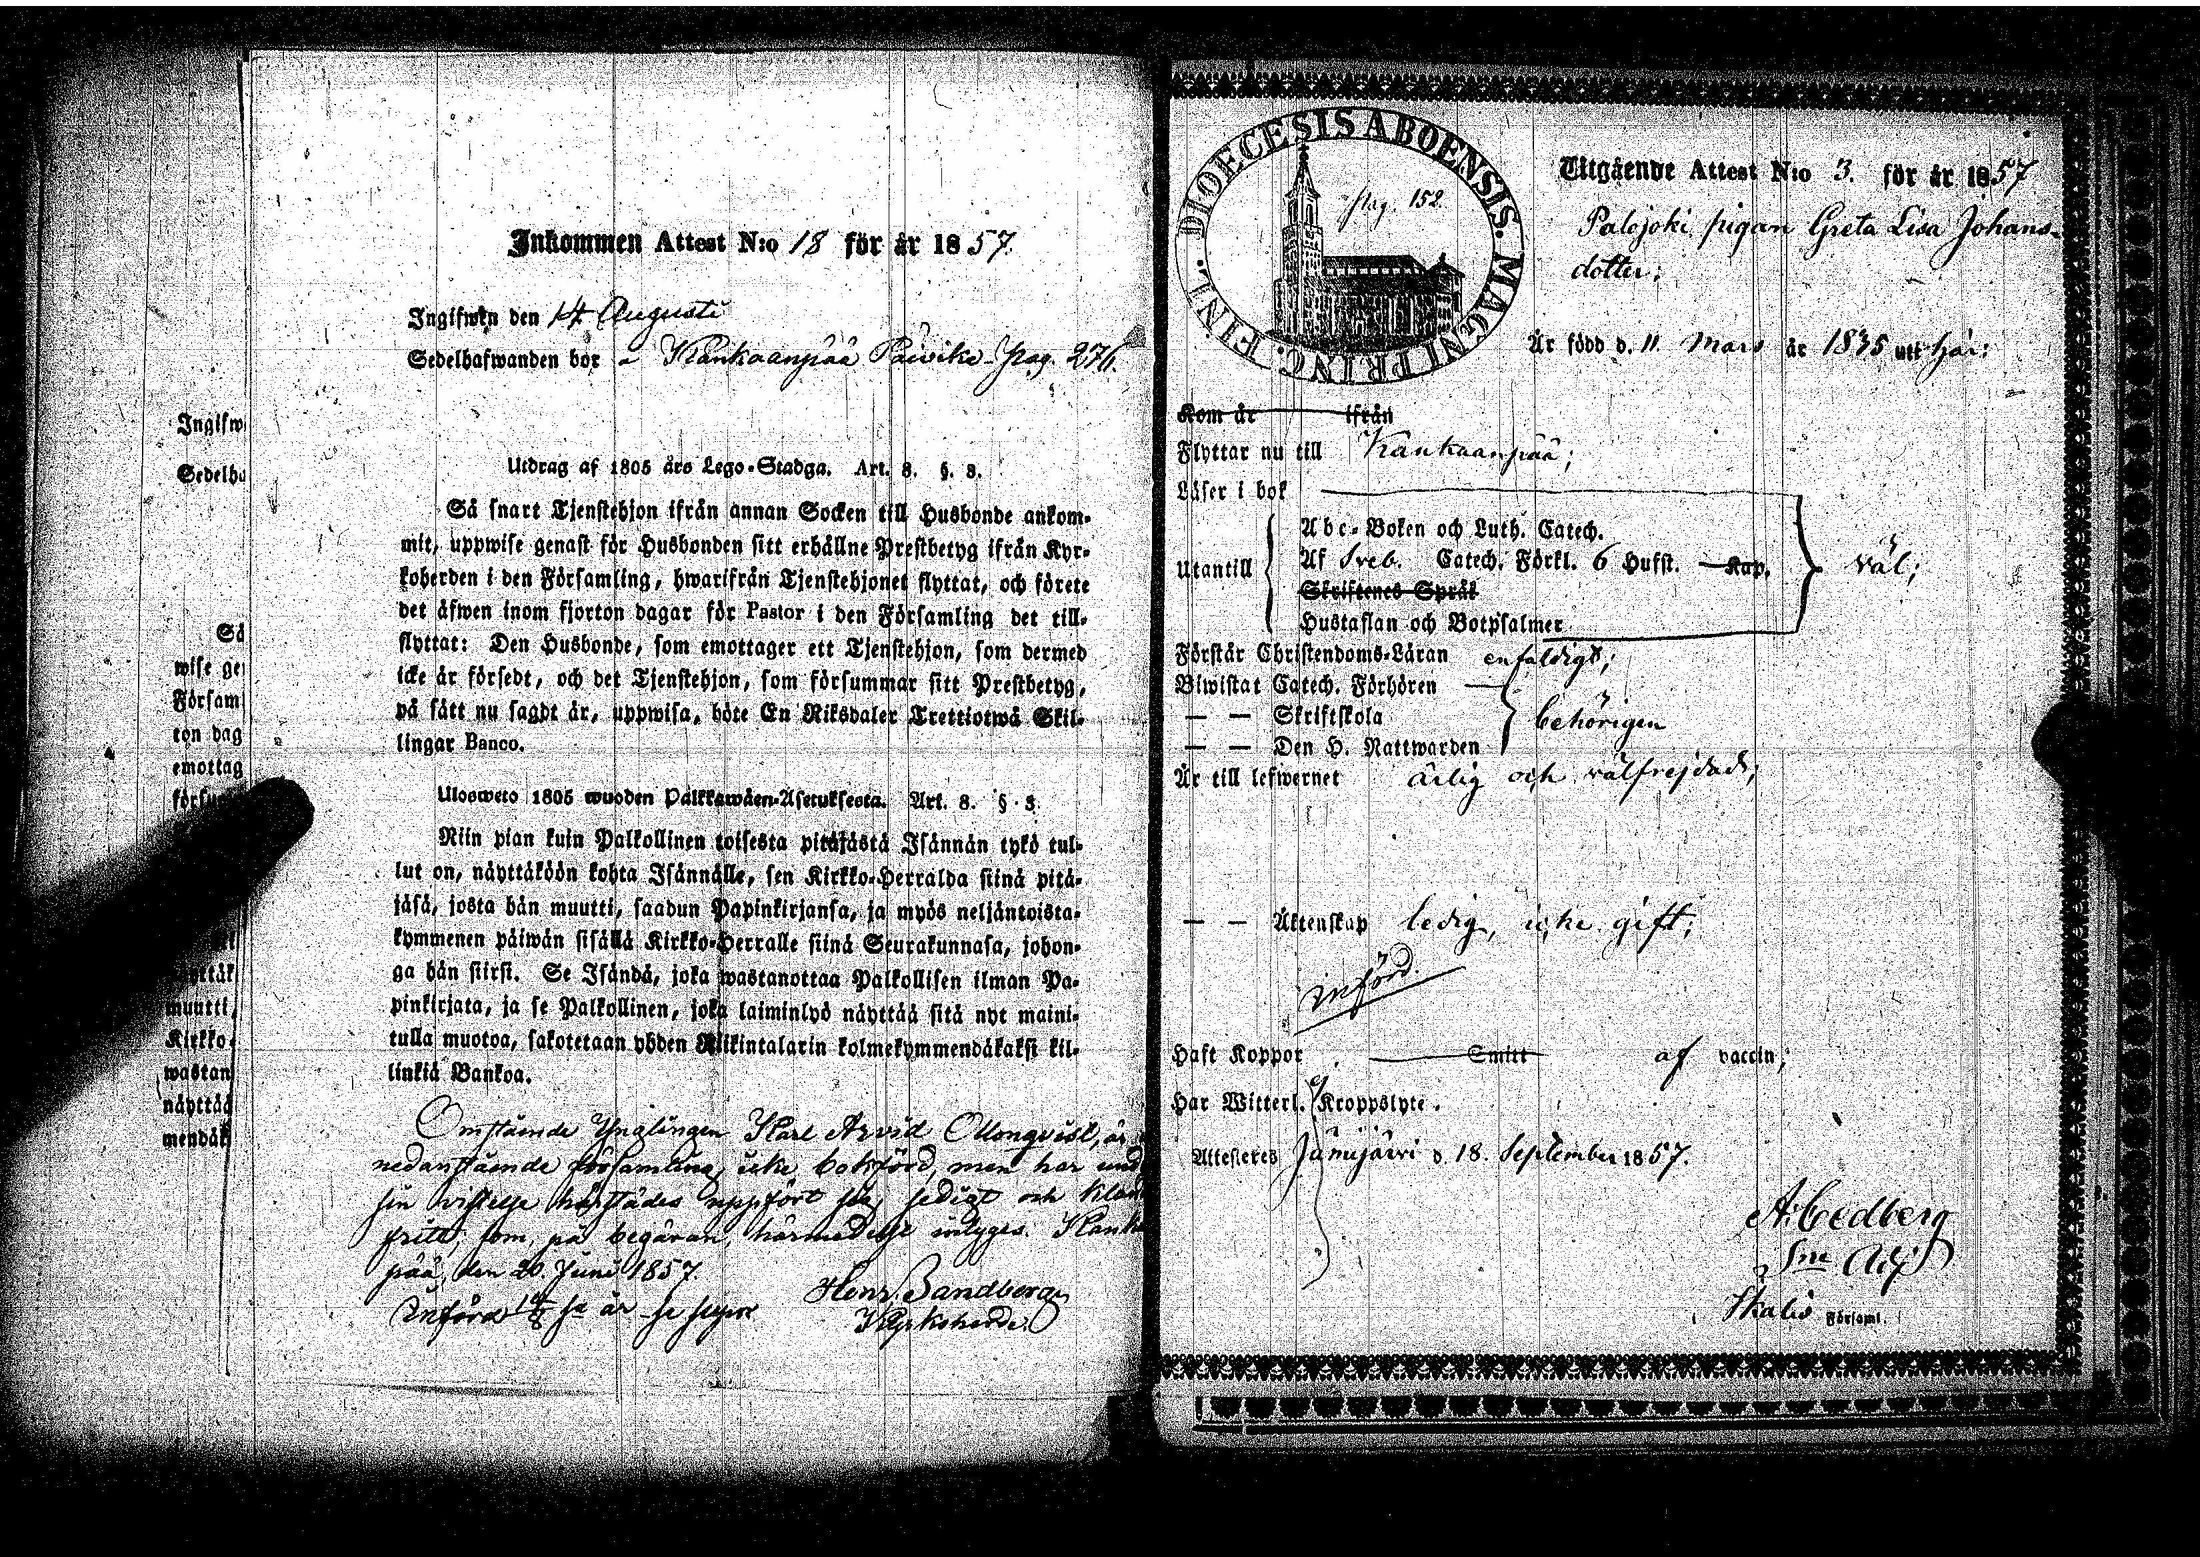 Inkommen Attest N:o 18 för år 1857.
Ingifwen den 14 Augusti
Sedelhafwanden bor - Kankaanpää Päivike pag. 276.
Utdrag af 1805 års Lego-Stadga. Art. 8. §. 3.
Så snart Tjenstehjon ifrån annan Socken till Husbonde ankom-
mit, uppwise genast för Husbonden sitt erhållne Prestbetyg ifrån Kyr-
koherden i den Församling, hwarifrån Tjenstehjonet flyttat, och förete
det äfwen inom fjorton dagar för Pastor i den Församling det till-
flyttat: Den Husbonde, som emottager ett Tjenstehjon, som dermed
icke är försedt, och det Tjenstehjon, som försummar sitt Prestbetyg,
på sätt nu sagdt är, uppwisa, böte En Riksdaler Trettiotwå Skil-
lingar Banco.
Ulosweto 1805 wuoden Palkkawäen-Asetuksesta. Art. 8. §. 3.
Niin pian kuin Palkollinen toisesta pitäjästä Isännän tykö tul-
lut on, näyttäköön kohta Isännälle, sen Kirkko-Herralda siinä pitä-
jäsä, josta hän muutti, saadun Papinkirjansa, ja myös neljäntoista-
kymmenen päiwän sisällä Kirkko-Herralle siinä Seurakunnasa, johon-
ga hän siirsi. Se Isändä, joka wastanottaa Palkollisen ilman Pa-
pinkirjata, ja se Palkollinen, joka laiminlyö näyttää sitä nyt maini-
tulla muotoa, sakotetaan yhden Riikintalarin kolmekymmendäkaksi kil-
linkiä Bankoa.
Omstående Ynglingen Karl Arvid Ollonqvist, är i
nedanstående församling icke bokförd, men har und
sin vistelse härstädes uppfört sig sedigt och klan
fritt; som, på begäran, härmedelst intygas. Kanka
pää, den 20. Juni 1857.
Henr. Sandberg
Kyrkoherde.
Införd
Ingifw
Sedelha
Så
wise ge
Försam
ton dag
emottag
försu
muutti,
Kirkko-
wastan
näyttää
mendäk
DIOECESIS ABOENSIS. MAGNI PRINC. FINL.
pag. 152
Utgående Attest N:o 3. för år 1857
Palojoki pigan Greta Lisa Johans-
dotter;
Är född d. 11 Mars år 1835 uti här;
Kom år ifrån
Flyttar nu till Kankaanpää;
Läser i bok
Utantill
Abc-Boken och Luth. Catech.
Af Sveb. Catech. Förkl. 6 Hufst. Kap.
Skriftenes Språk
Hustaflan och Botpsalmer
väl;
Förstår Christendoms-Läran enfaldigt;
Biwistat Catech. Förhören
— — Skriftskola
— — Den H. Nattwarden
behörigen
Är till lefwernet ärlig och välfrejdad;
— — Äktenskap ledig, icke gift;
införd.
Haft Koppor Smitt af vaccin;
Har Witterl. Kroppslyte.
Attesteres Jämijärvi d. 18. September 1857.
A. Cedberg
Skalis Församl.